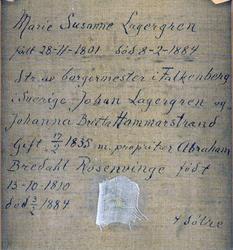 Marie Susanne Lagergren
født 28-11-1801 død 8-2-1884
Dtr. av borgermester i Falkenberg
Sverige, Johan Lagergren og
Johanna Britta Hammarstrand
Gift 17/9 1835 m. proprietær Abraham
Bredahl Rosenvinge født
15-10-1810
død 3/2 1884